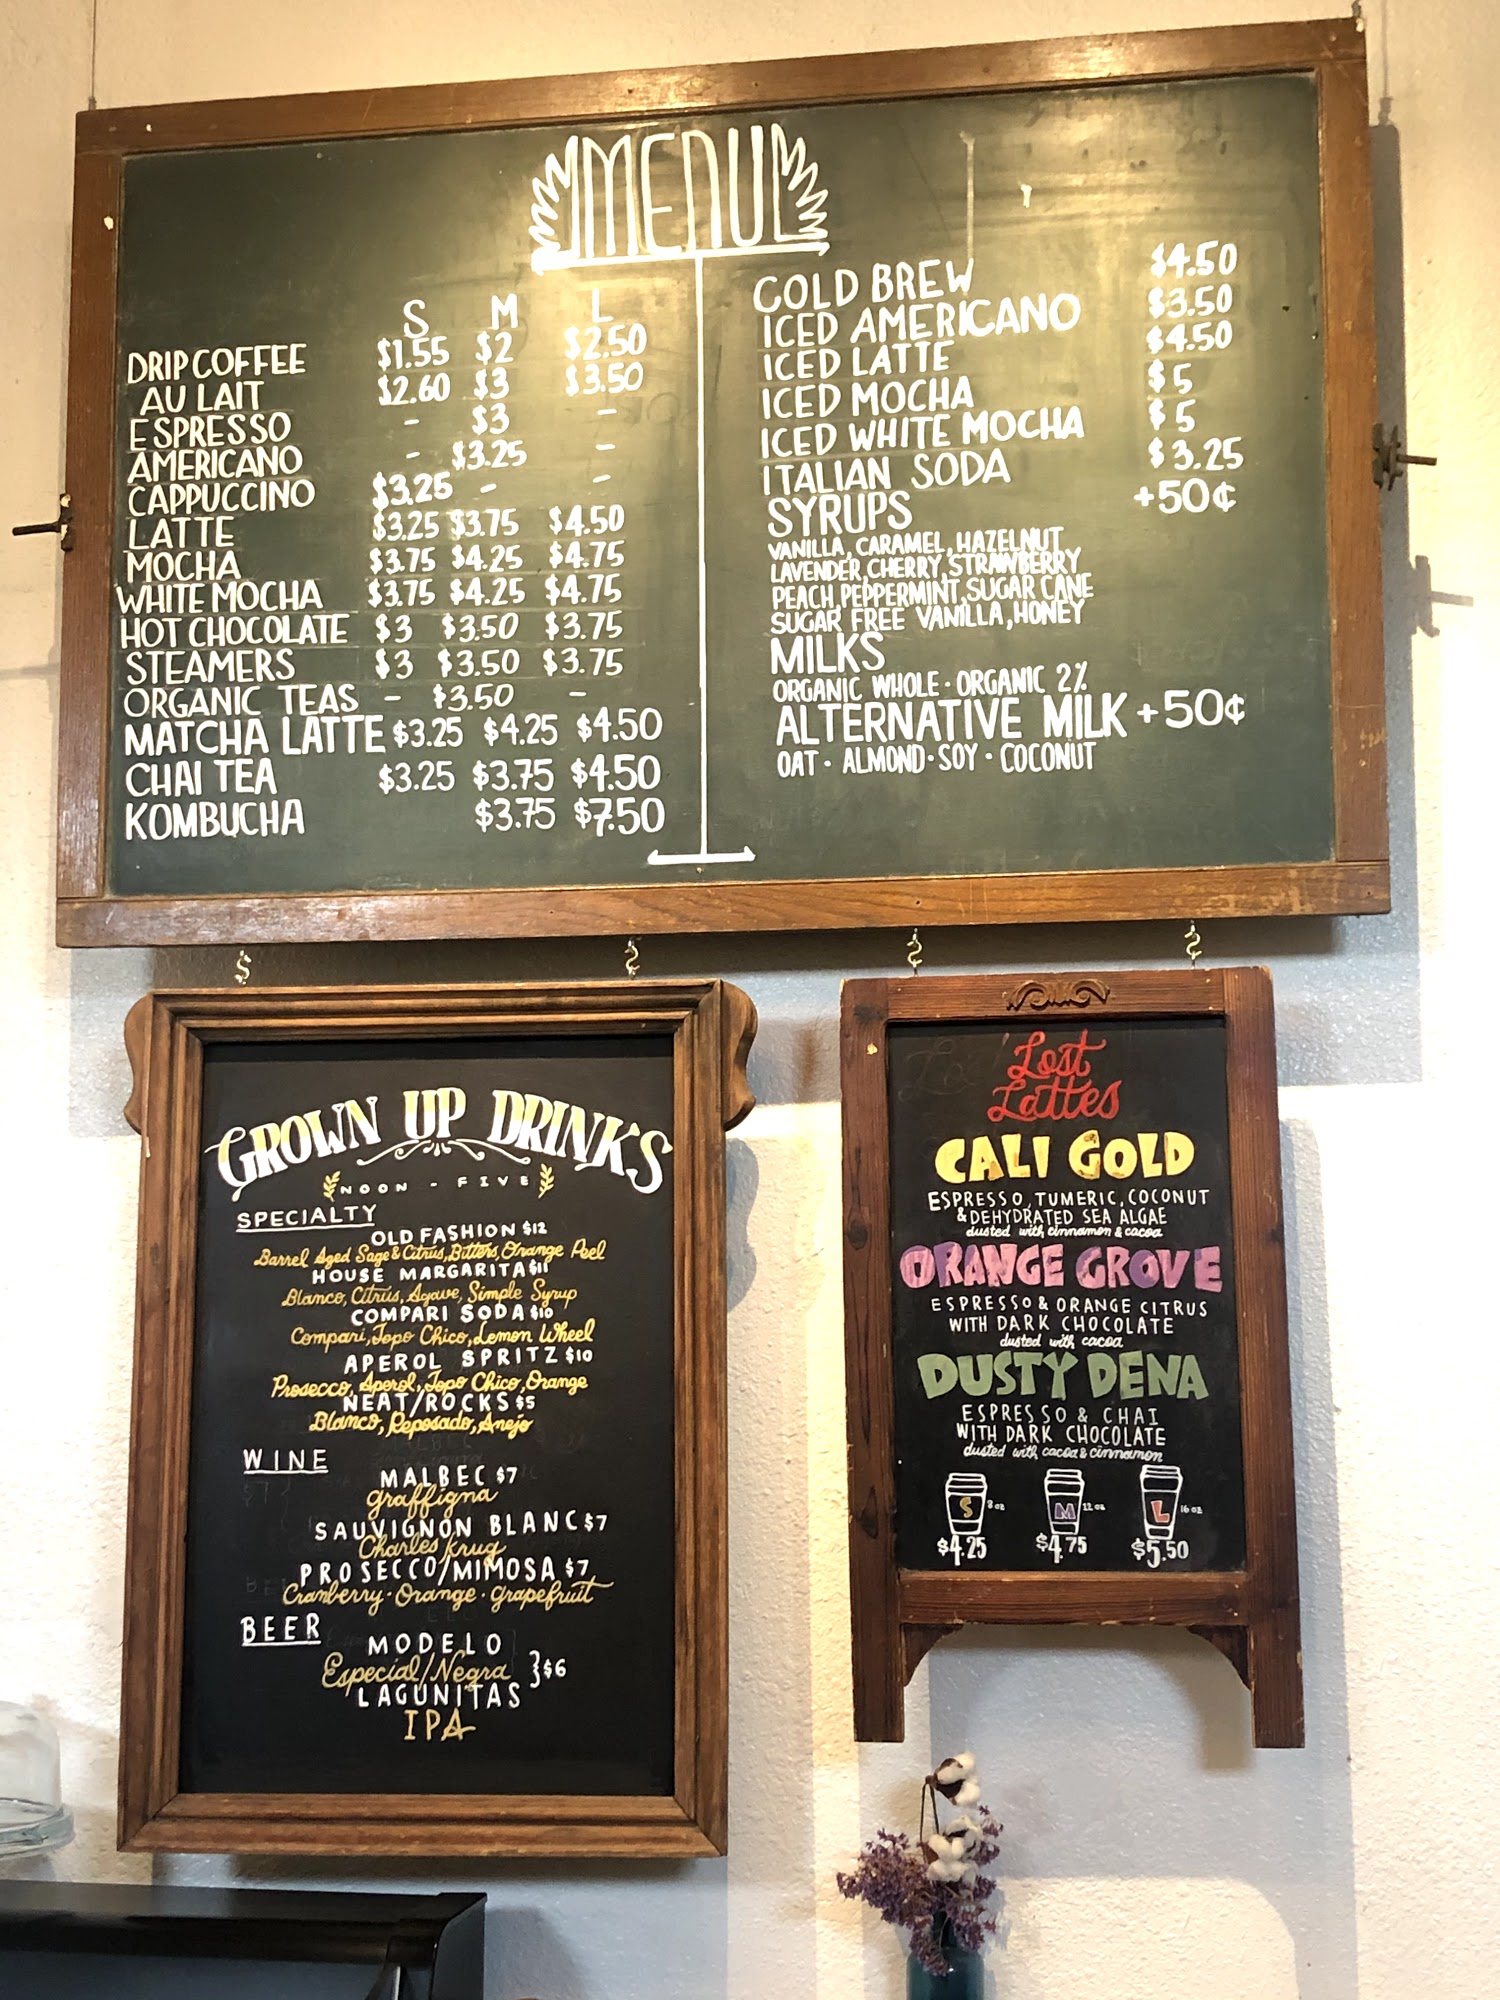 MENU
S M L
DRIP COFFEE $1.55 $2 $2.50
AU LAIT $2.60 $3 $3.50
ESPRESSO - $3 -
AMERICANO - $3.25 -
CAPPUCCINO $3.25 - -
LATTE $3.25 $3.75 $4.50
MOCHA $3.75 $4.25 $4.75
WHITE MOCHA $3.75 $4.25 $4.75
HOT CHOCOLATE $3 $3.50 $3.75
STEAMERS $3 $3.50 $3.75
ORGANIC TEAS - $3.50 -
MATCHA LATTE $3.25 $4.25 $4.50
CHAI TEA $3.25 $3.75 $4.50
KOMBUCHA $3.75 $7.50
COLD BREW $4.50
ICED AMERICANO $3.50
ICED LATTE $4.50
ICED MOCHA $5
ICED WHITE MOCHA $5
ITALIAN SODA $3.25
SYRUPS +50¢
VANILLA, CARAMEL, HAZELNUT
LAVENDER, CHERRY, STRAWBERRY
PEACH, PEPPERMINT, SUGAR CANE
SUGAR FREE VANILLA, HONEY
MILKS
ORGANIC WHOLE · ORGANIC 2%
ALTERNATIVE MILK +50¢
OAT · ALMOND · SOY · COCONUT
GROWN UP DRINKS
NOON - FIVE
SPECIALTY
OLD FASHION $12
Barrel Aged Sage & Citrus, Bitters, Orange Peel
HOUSE MARGARITA $11
Blanco, Citrus, Agave, Simple Syrup
COMPARI SODA $10
Compari, Topo Chico, Lemon Wheel
APEROL SPRITZ $10
Prosecco, Aperol, Topo Chico, Orange
NEAT/ROCKS $5
Blanco, Reposado, Anejo
WINE
MALBEC $7
graffigna
SAUVIGNON BLANC $7
Charles Krug
PROSECCO/MIMOSA $7
Cranberry · Orange · grapefruit
BEER
MODELO
Especial/Negra }$6
LAGUNITAS
IPA
Lost
Lattes
CALI GOLD
ESPRESSO, TUMERIC, COCONUT
& DEHYDRATED SEA ALGAE
dusted with cinnamon & cacoa
ORANGE GROVE
ESPRESSO & ORANGE CITRUS
WITH DARK CHOCOLATE
dusted with cacoa
DUSTY DENA
ESPRESSO & CHAI
WITH DARK CHOCOLATE
dusted with cacoa & cinnamon
S 8 oz M 12 oz L 16 oz
$4.25 $4.75 $5.50